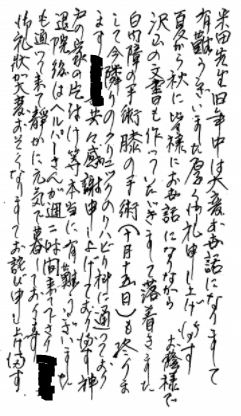 米田先生旧年中は大変お世話になりまして
有難うございました厚く御礼申し上げます
夏から秋に皆様にお世話になりながら お蔭様で
沢山の文書も作っていただきまして落着きました
白内障の手術膝の手術(十月十五日)も終りま
して今隣りのクリニックのリハビリ科に通っており
ます 共々感謝申し上げております神
戸の家の片付け等本当に有難うございました
退院後はヘルパーさんが週二時間来て下さり
も通って来て静かに元気で暮しております
御礼状が大変おそくなりましてお詫び申し上げます